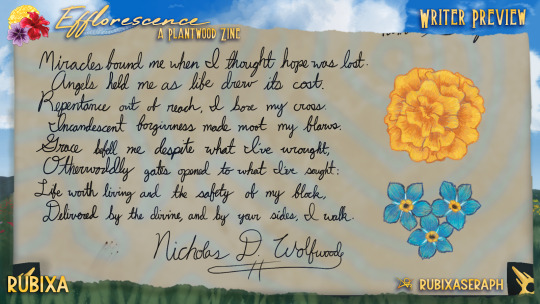 Efflorescence
A PLANTWOOD ZINE
WRITER PREVIEW
Miracles bound me when I thought hope was lost.
Angels held me as life drew its cost.
Repentance out of reach, I bore my cross.
Incandescent forgiveness made moot my flaws.
Grace befell me despite what I've wrought,
Otherworldly gates opened to what I've sought:
Life worth living and the safety of my flock,
Delivered by the divine, and by your sides, I walk.
Nicholas D. Wolfwood
RUBIXA
RUBIXASERAPH